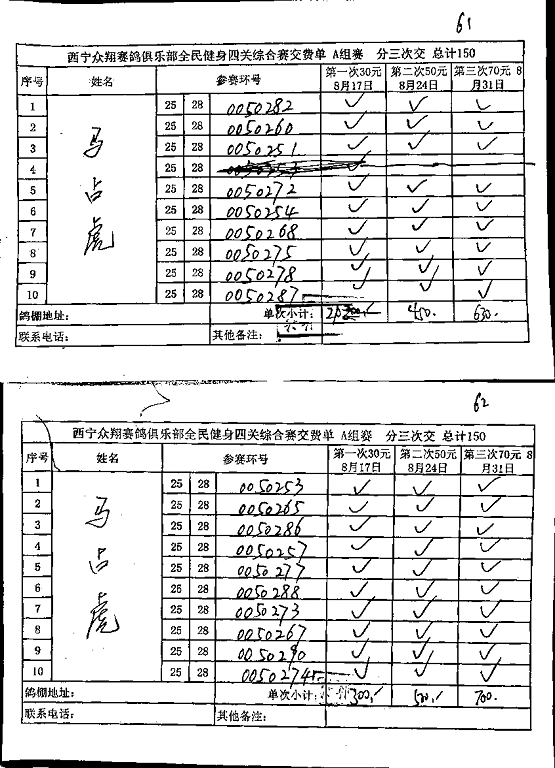 61
西宁众翔赛鸽俱乐部全民健身四关综合赛交费单 A组赛 分三次交 总计150
序号 姓名 参赛环号 第一次30元 8月17日 第二次50元 8月24日 第三次70元 8月31日
马占虎
1 25 28 0050282 ✓ ✓ ✓
2 25 28 0050260 ✓ ✓ ✓
3 25 28 0050251 ✓ ✓ ✓
4 25 28
5 25 28 0050272 ✓ ✓ ✓
6 25 28 0050254 ✓ ✓ ✓
7 25 28 0050268 ✓ ✓ ✓
8 25 28 0050275 ✓ ✓ ✓
9 25 28 0050278 ✓ ✓ ✓
10 25 28 0050287 ✓ ✓ ✓
鸽棚地址: 单次小计: 450. 630.
联系电话: 其他备注:
62
西宁众翔赛鸽俱乐部全民健身四关综合赛交费单 A组赛 分三次交 总计150
序号 姓名 参赛环号 第一次30元 8月17日 第二次50元 8月24日 第三次70元 8月31日
马占虎
1 25 28 0050253 ✓ ✓ ✓
2 25 28 0050265 ✓ ✓ ✓
3 25 28 0050286 ✓ ✓ ✓
4 25 28 0050257 ✓ ✓ ✓
5 25 28 0050277 ✓ ✓ ✓
6 25 28 0050288 ✓ ✓ ✓
7 25 28 0050273 ✓ ✓ ✓
8 25 28 0050267 ✓ ✓ ✓
9 25 28 0050290 ✓ ✓ ✓
10 25 28 0050274 ✓ ✓ ✓
鸽棚地址: 单次小计: 300. 500. 700.
联系电话: 其他备注: